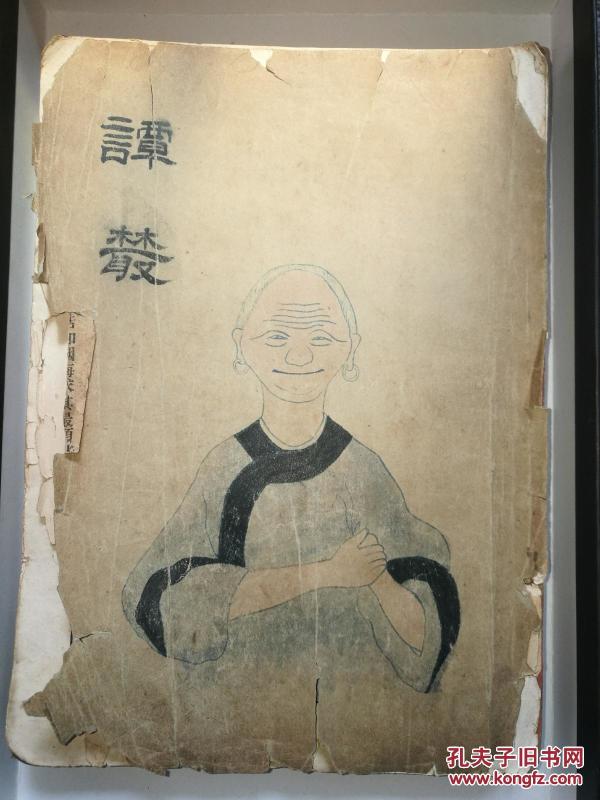 譚
叢
孔夫子旧书网
www.kongfz.com